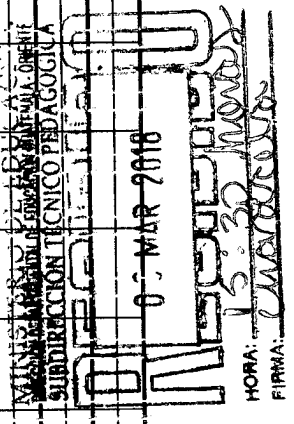 MINISTERIO DE EDUCACIÓN
DIRECCIÓN DEPARTAMENTAL DE EDUCACIÓN GUATEMALA ORIENTE
SUBDIRECCION TECNICO PEDAGOGICA
RECIBIDO
MAR 2018
HORA: 15:30 horas
FIRMA: